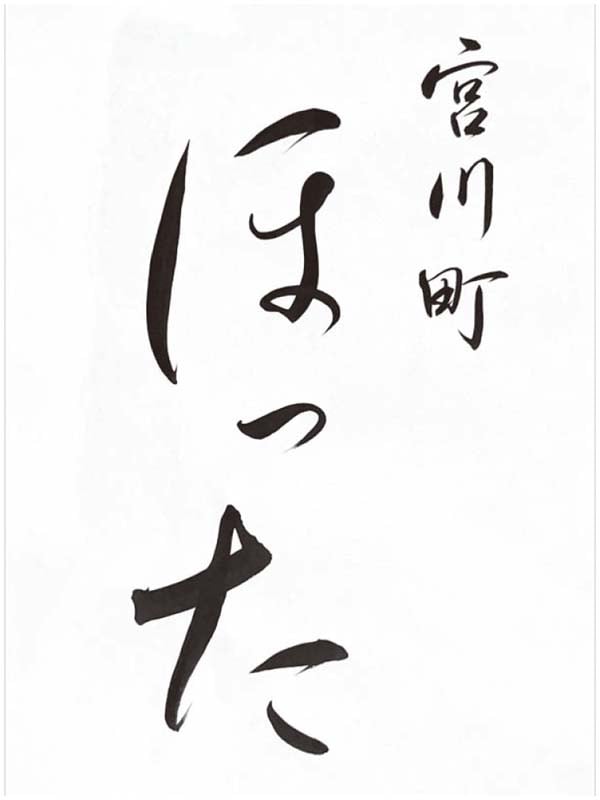 宮川町
ほった